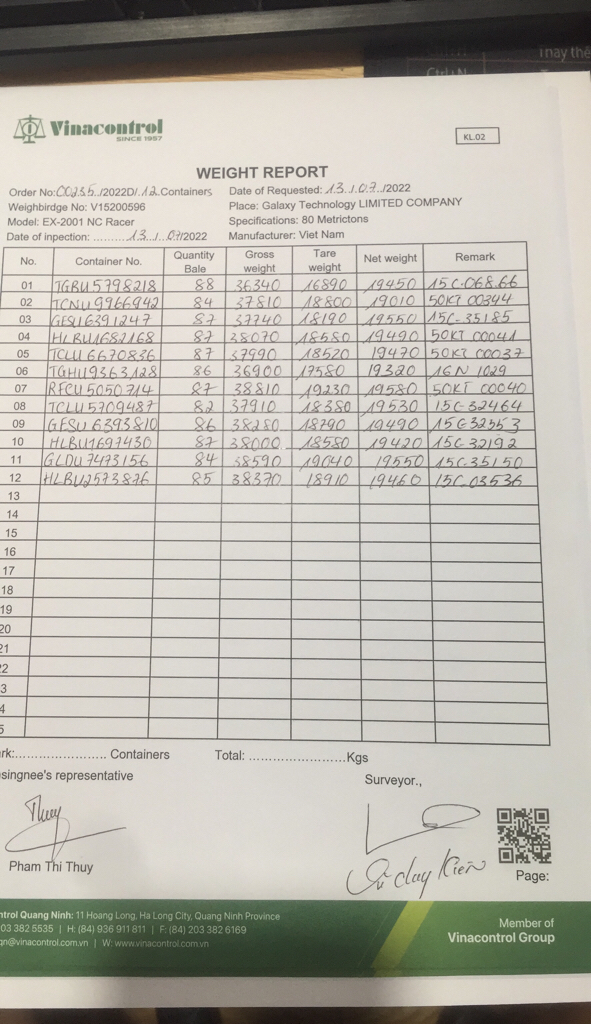 Thay thế
Vinacontrol
SINCE 1957
KL.02
WEIGHT REPORT
Order No:00235../2022D/.12.Containers Date of Requested: 13./.07./2022
Weighbirdge No: V15200596 Place: Galaxy Technology LIMITED COMPANY
Model: EX-2001 NC Racer Specifications: 80 Metrictons
Date of inpection: ..........13../..07/2022 Manufacturer: Viet Nam
No. Container No. Quantity Bale Gross weight Tare weight Net weight Remark
01 TGBU5798218 88 36340 16890 19450 15C-068.66
02 TCNU9966942 84 37810 18800 19010 50KT 00344
03 GESU6391247 87 37740 18190 19550 15C-35185
04 HLBU1682168 87 38070 18580 19490 50KT 00041
05 TCLU6670836 87 37990 18520 19470 50KT 00037
06 TGHU9363128 86 36900 17580 19320 16N 1029
07 RFCU5050714 87 38810 19230 19580 50KT 00040
08 TCLU5709487 82 37910 18380 19530 15C-32464
09 GESU6393810 86 38280 18790 19490 15C32553
10 HLBU1697430 87 38000 18580 19420 15C-32192
11 GLDU7473156 84 38590 19040 19550 15C-35150
12 HLBU2573876 85 38370 18910 19460 15C-03536
13
14
15
16
17
18
19
20
21
2
3
4
5
rk:....................... Containers Total: ........................Kgs
singnee's representative Surveyor.,
Thuy
Pham Thi Thuy
Page:
ntrol Quang Ninh: 11 Hoang Long, Ha Long City, Quang Ninh Province
03 382 5535 | H: (84) 936 911 811 | F: (84) 203 382 6169
qn@vinacontrol.com.vn | W: www.vinacontrol.com.vn
Member of
Vinacontrol Group